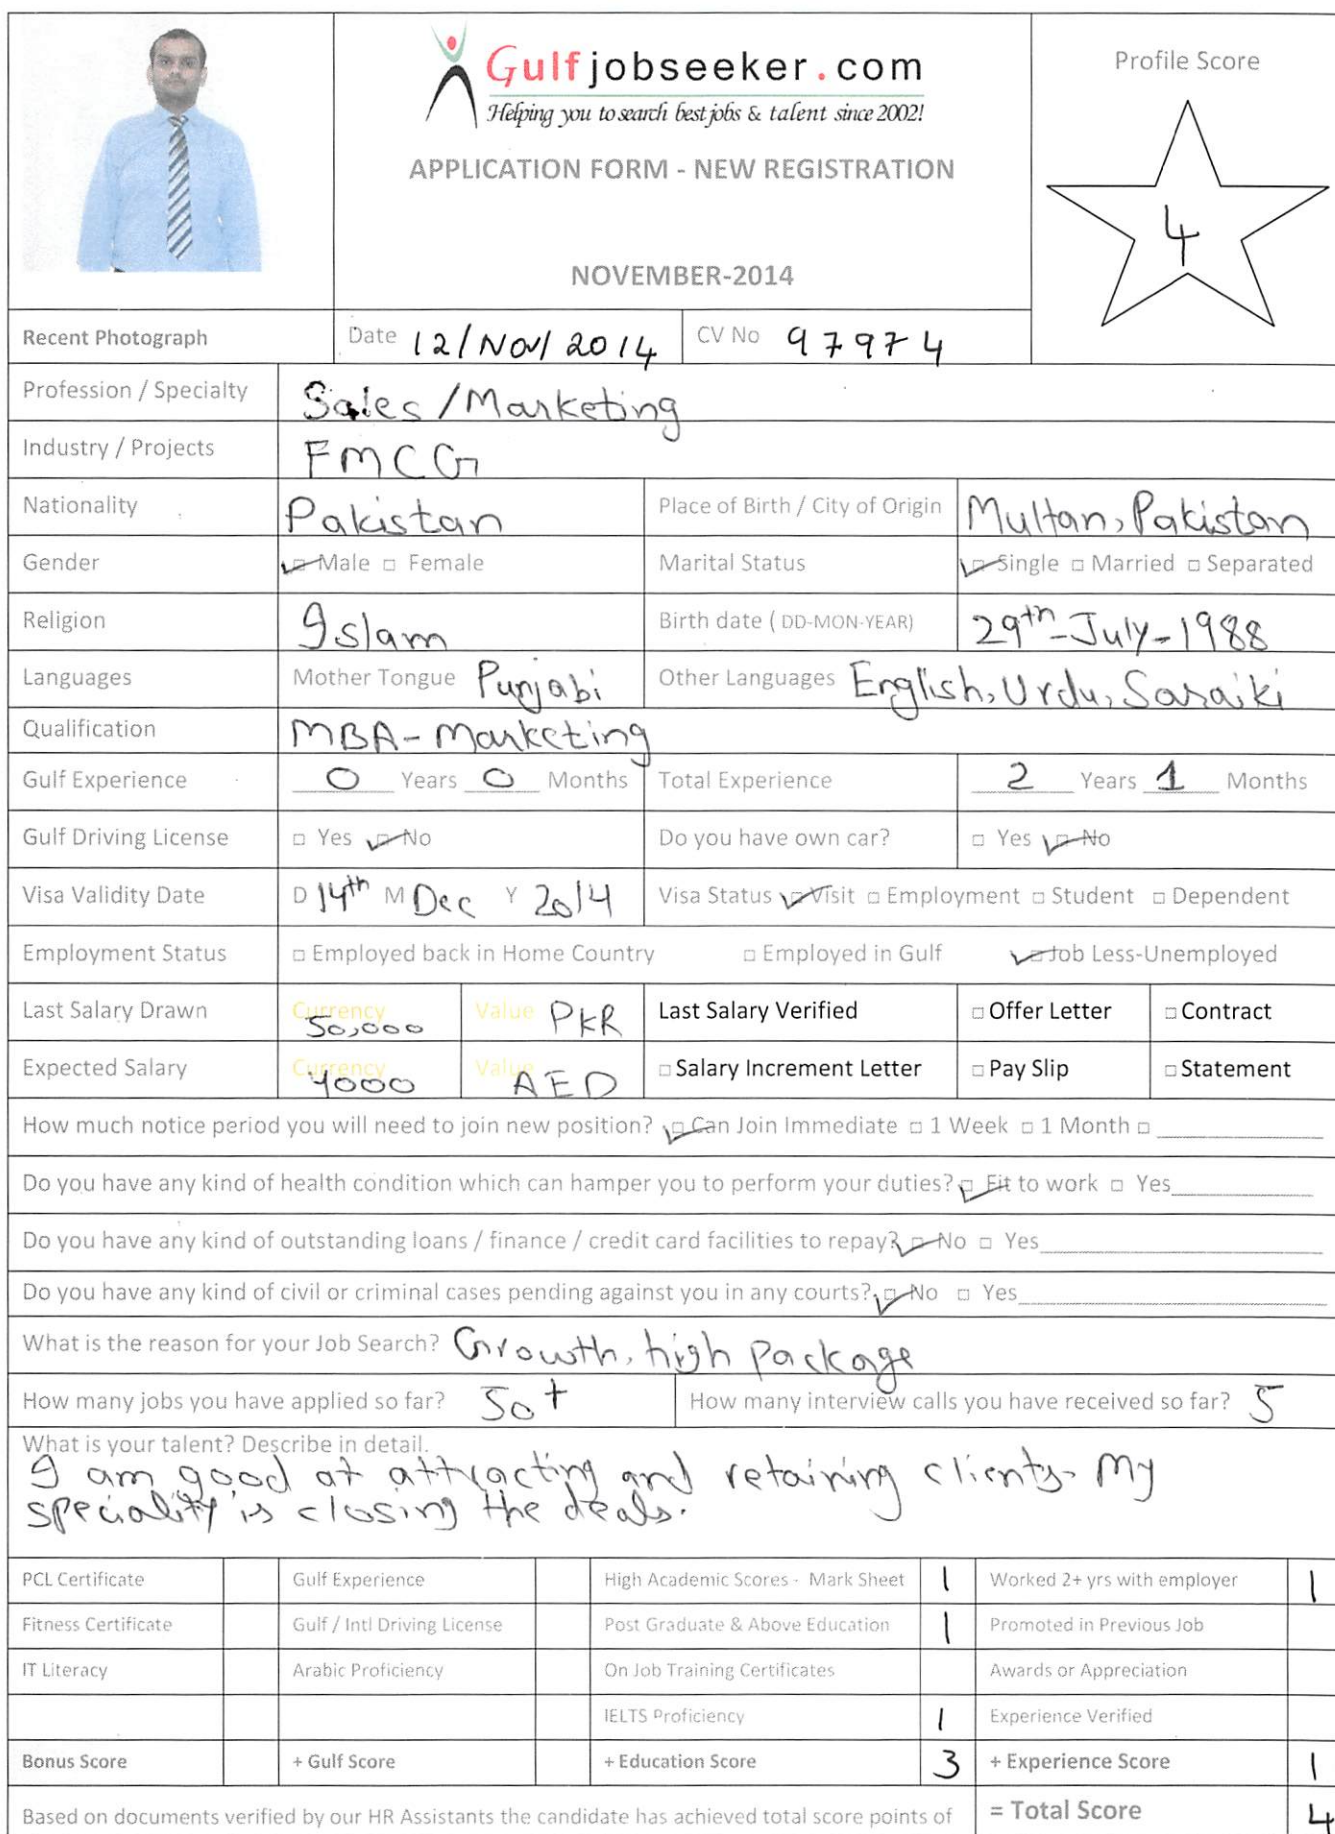 Gulfjobseeker.com
Helping you to search best jobs & talent since 2002!
APPLICATION FORM - NEW REGISTRATION
NOVEMBER-2014
Profile Score
4
Recent Photograph
Date 12/Nov/2014
CV No 97974
Profession / Specialty Sales/Marketing
Industry / Projects FMCG
Nationality Pakistan
Place of Birth / City of Origin Multan, Pakistan
Gender Male Female
Marital Status Single Married Separated
Religion Islam
Birth date ( DD-MON-YEAR) 29th-July-1988
Languages Mother Tongue Punjabi
Other Languages English, Urdu, Saraiki
Qualification MBA-Marketing
Gulf Experience 0 Years 0 Months
Total Experience 2 Years 1 Months
Gulf Driving License Yes No
Do you have own car? Yes No
Visa Validity Date D 14th M Dec Y 2014
Visa Status Visit Employment Student Dependent
Employment Status Employed back in Home Country Employed in Gulf Job Less-Unemployed
Last Salary Drawn Currency 50,000 Value PKR
Last Salary Verified Offer Letter Contract
Expected Salary Currency 4000 Value AED
Salary Increment Letter Pay Slip Statement
How much notice period you will need to join new position? Can Join Immediate 1 Week 1 Month
Do you have any kind of health condition which can hamper you to perform your duties? Fit to work Yes
Do you have any kind of outstanding loans / finance / credit card facilities to repay? No Yes
Do you have any kind of civil or criminal cases pending against you in any courts? No Yes
What is the reason for your Job Search? Growth, high package
How many jobs you have applied so far? 50+
How many interview calls you have received so far? 5
What is your talent? Describe in detail.
I am good at attracting and retaining clients. My
speciality is closing the deals.
PCL Certificate Gulf Experience High Academic Scores - Mark Sheet 1 Worked 2+ yrs with employer 1
Fitness Certificate Gulf / Intl Driving License Post Graduate & Above Education 1 Promoted in Previous Job
IT Literacy Arabic Proficiency On Job Training Certificates Awards or Appreciation
IELTS Proficiency 1 Experience Verified
Bonus Score + Gulf Score + Education Score 3 + Experience Score 1
Based on documents verified by our HR Assistants the candidate has achieved total score points of = Total Score 4